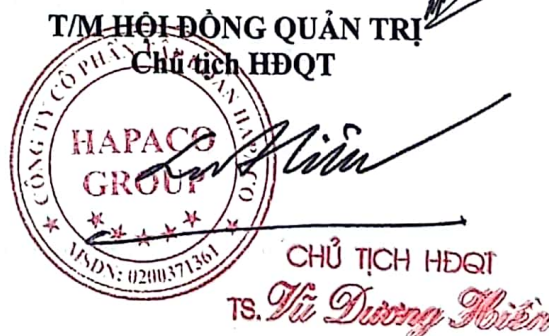 T/M HỘI ĐỒNG QUẢN TRỊ
Chủ tịch HĐQT
CÔNG TY CỔ PHẦN TẬP ĐOÀN HAPACO
HAPACO
GROUP
MSDN: 0200371361
CHỦ TỊCH HĐQT
TS. Vũ Dương Hiền